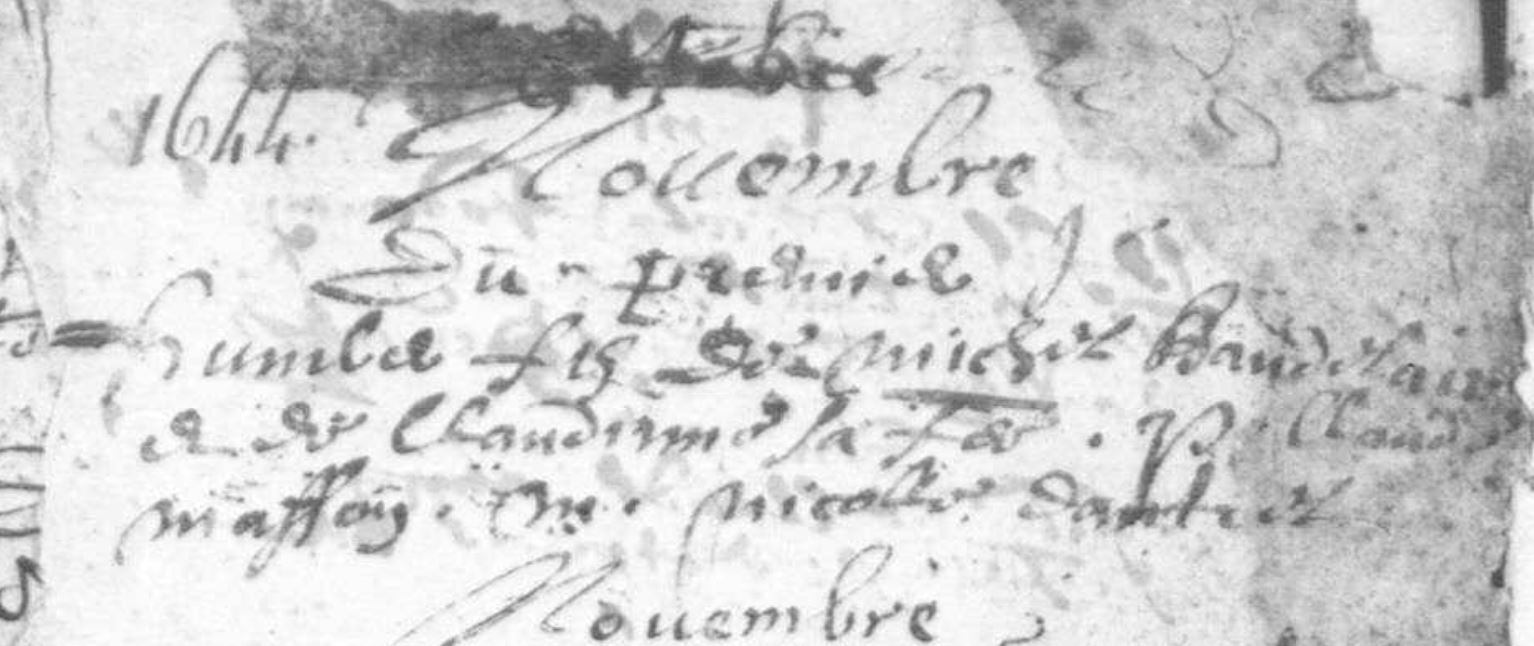 1644. Nouembre
Du premier
humber fis de michel baudelaire
et de Claudinne sa fe . P. Claude
masson . M. nicolle
Nouembre